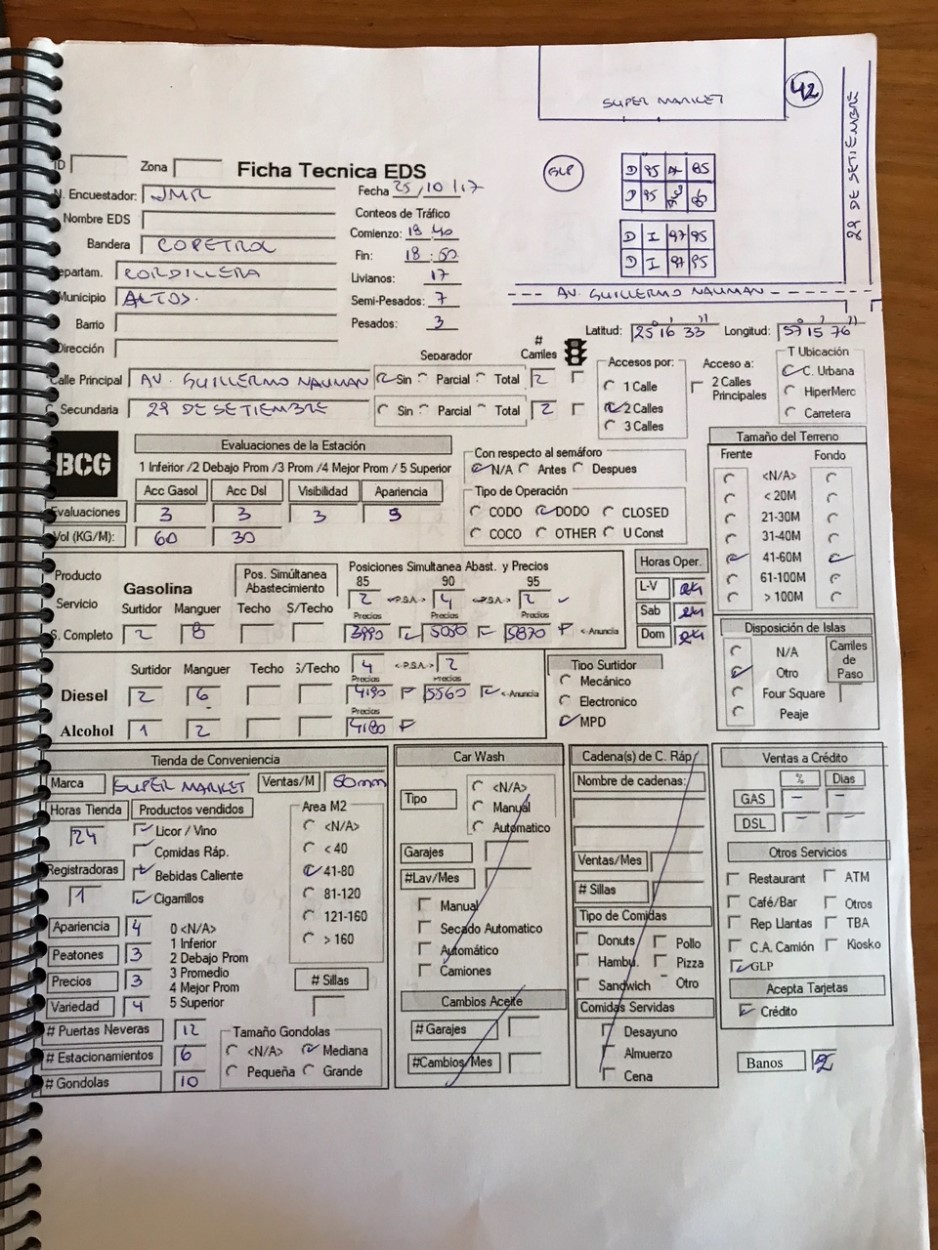 SUPER MARKET
42
29 DE SETIEMBRE
GLP
D 95 85
D 95
D I 97 95
D I 97 95
AV. GUILLERMO NAUMAN
ID Zona Ficha Tecnica EDS
N. Encuestador: JMR
Fecha 25/10/17
Nombre EDS
Conteos de Tráfico
Bandera COPETROL
Comienzo: 18:40
Fin: 18:50
Departam. CORDILLERA
Livianos: 17
Municipio ALTOS.
Semi-Pesados: 7
Barrio
Pesados: 3
Dirección
Latitud: 25° 16' 33" Longitud: 57° 15' 76"
Separador # Carriles
Calle Principal AV. GUILLERMO NAUMAN Sin Parcial Total 2
C. Secundaria 29 DE SETIEMBRE Sin Parcial Total 2
Accesos por:
1 Calle
2 Calles
3 Calles
Acceso a:
2 Calles Principales
T Ubicación
C. Urbana
HiperMerc
Carretera
BCG
Evaluaciones de la Estación
1 Inferior /2 Debajo Prom /3 Prom /4 Mejor Prom / 5 Superior
Acc Gasol Acc Dsl Visibilidad Apariencia
Evaluaciones 3 3 3
Vol (KG/M): 60 30
Con respecto al semáforo
N/A Antes Despues
Tipo de Operación
CODO DODO CLOSED
COCO OTHER U Const
Tamaño del Terreno
Frente Fondo
<N/A>
< 20M
21-30M
31-40M
41-60M
61-100M
> 100M
Producto Gasolina Pos. Simúltanea Abastecimiento
Posiciones Simultanea Abast. y Precios
85 90 95
2 <-P.S.A.-> 4 <-P.S.A.-> 2
Servicio Surtidor Manguer Techo S/Techo
Precios Precios Precios
S. Completo 2 8 3990 5050 5870 <-Anuncia
Horas Oper.
L-V 24
Sab 24
Dom 24
Surtidor Manguer Techo S/Techo 4 <-P.S.A.-> 2
Precios Precios
Diesel 2 6 4190 5560 <-Anuncia
Precios
Alcohol 1 2 4180
Tipo Surtidor
Mecánico
Electronico
MPD
Disposición de Islas
N/A
Otro
Four Square
Peaje
Carriles de Paso
Tienda de Conveniencia
Marca SUPER MARKET Ventas/M 50mm
Horas Tienda Productos vendidos
24
Licor / Vino
Comidas Ráp.
Registradoras Bebidas Caliente
1 Cigarrillos
Area M2
<N/A>
< 40
41-80
81-120
121-160
> 160
Apariencia 4
Peatones 3
Precios 3
Variedad 4
0 <N/A>
1 Inferior
2 Debajo Prom
3 Promedio
4 Mejor Prom
5 Superior
# Sillas
# Puertas Neveras 12
# Estacionamientos 6
# Gondolas 10
Tamaño Gondolas
<N/A> Mediana
Pequeña Grande
Car Wash
Tipo
<N/A>
Manual
Automatico
Garajes
#Lav/Mes
Manual
Secado Automatico
Automático
Camiones
Cambios Aceite
# Garajes
#Cambios/Mes
Cadena(s) de C. Ráp.
Nombre de cadenas:
Ventas/Mes
# Sillas
Tipo de Comidas
Donuts Pollo
Hambu. Pizza
Sandwich Otro
Comidas Servidas
Desayuno
Almuerzo
Cena
Ventas a Crédito
% Dias
GAS - -
DSL - -
Otros Servicios
Restaurant ATM
Café/Bar Otros
Rep Llantas TBA
C.A. Camión Kiosko
GLP
Acepta Tarjetas
Crédito
Banos 2